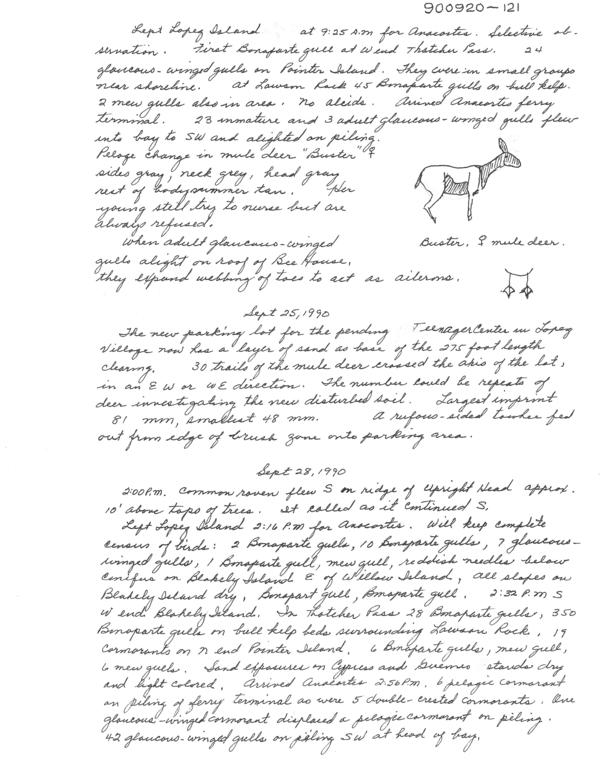 900920-121
Left Lopez Island at 9:25 A.M for Anacortes. Selective ob-
servation. First Bonaparte gull at W end Thatcher Pass. 24
glaucous-winged gulls on Pointer Island. They were in small groups
near shoreline. At Lawson Rock 45 Bonaparte gulls on bull kelp.
2 mew gulls also in area. No alcids. Arrived Anacortes ferry
terminal. 23 immature and 3 adult glaucous-winged gulls flew
into bay to SW and alighted on piling.
Pelage change in mule deer "Buster" ♀
sides gray, neck grey, head gray
rest of body summer tan. Her
young still try to nurse but are
always refused.
When adult glaucous-winged
gulls alight on roof of Bee House,
they expand webbing of toes to act as ailerons.
Buster, ♀ mule deer.
Sept 25, 1990
The new parking lot for the pending Teenager Center in Lopez
Village now has a layer of sand as base of the 275 foot length
clearing. 30 trails of the mule deer crossed the axis of the lot,
in an E W or W E direction. The number could be repeats of
deer investigating the new disturbed soil. Largest imprint
81 mm, smallest 48 mm. A rufous-sided towhee fed
out from edge of brush zone onto parking area.
Sept 28, 1990
2:00 P.m. Common raven flew S on ridge of Upright Head approx.
10' above tops of trees. It called as it continued S.
Left Lopez Island 2:16 P.M for Anacortes. Will keep complete
census of birds: 2 Bonaparte gulls, 10 Bonaparte gulls, 7 glaucous-
winged gulls, 1 Bonaparte gull, mew gull, reddish needles below
conifers on Blakely Island E of Willow Island, all slopes on
Blakely Island dry, Bonapart gull, Bonaparte gull. 2:32 P.M S
W end Blakely Island. In Thatcher Pass 28 Bonaparte gulls, 350
Bonaparte gulls on bull kelp beds surrounding Lawson Rock, 19
Cormorants on N end Pointer Island. 6 Bonaparte gulls, mew gull,
6 mew gulls. Sand exposures on Cypress and Guemes stands dry
and light colored. Arrived Anacortes 2:56 P.M. 6 pelagic cormorant
on piling of ferry terminal as were 5 double-crested cormorants. One
glaucous-winged cormorant displaced a pelagic cormorant on piling.
42 glaucous-winged gulls on piling SW at head of bay.